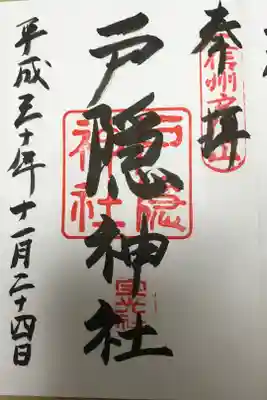 奉拝
信州戸隠山
戸隠神社
戸隠
神社
平成三十年十一月二十四日